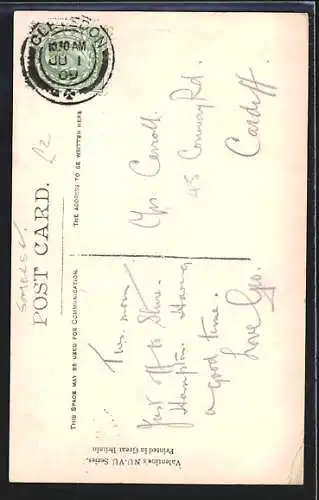 CLEVEDON
10.30 AM
JU 1
09
Somerset.
£2
POST CARD.
THIS SPACE MAY BE USED FOR COMMUNICATION.
THE ADDRESS TO BE WRITTEN HERE.
Tues. morn
Just off to Stone.
Hampton. Having
a good time.
Love Geo.
Carroll.
45 Conway Rd.
Cardiff.
Valentine's NU-VU Series.
Printed in Great Britain